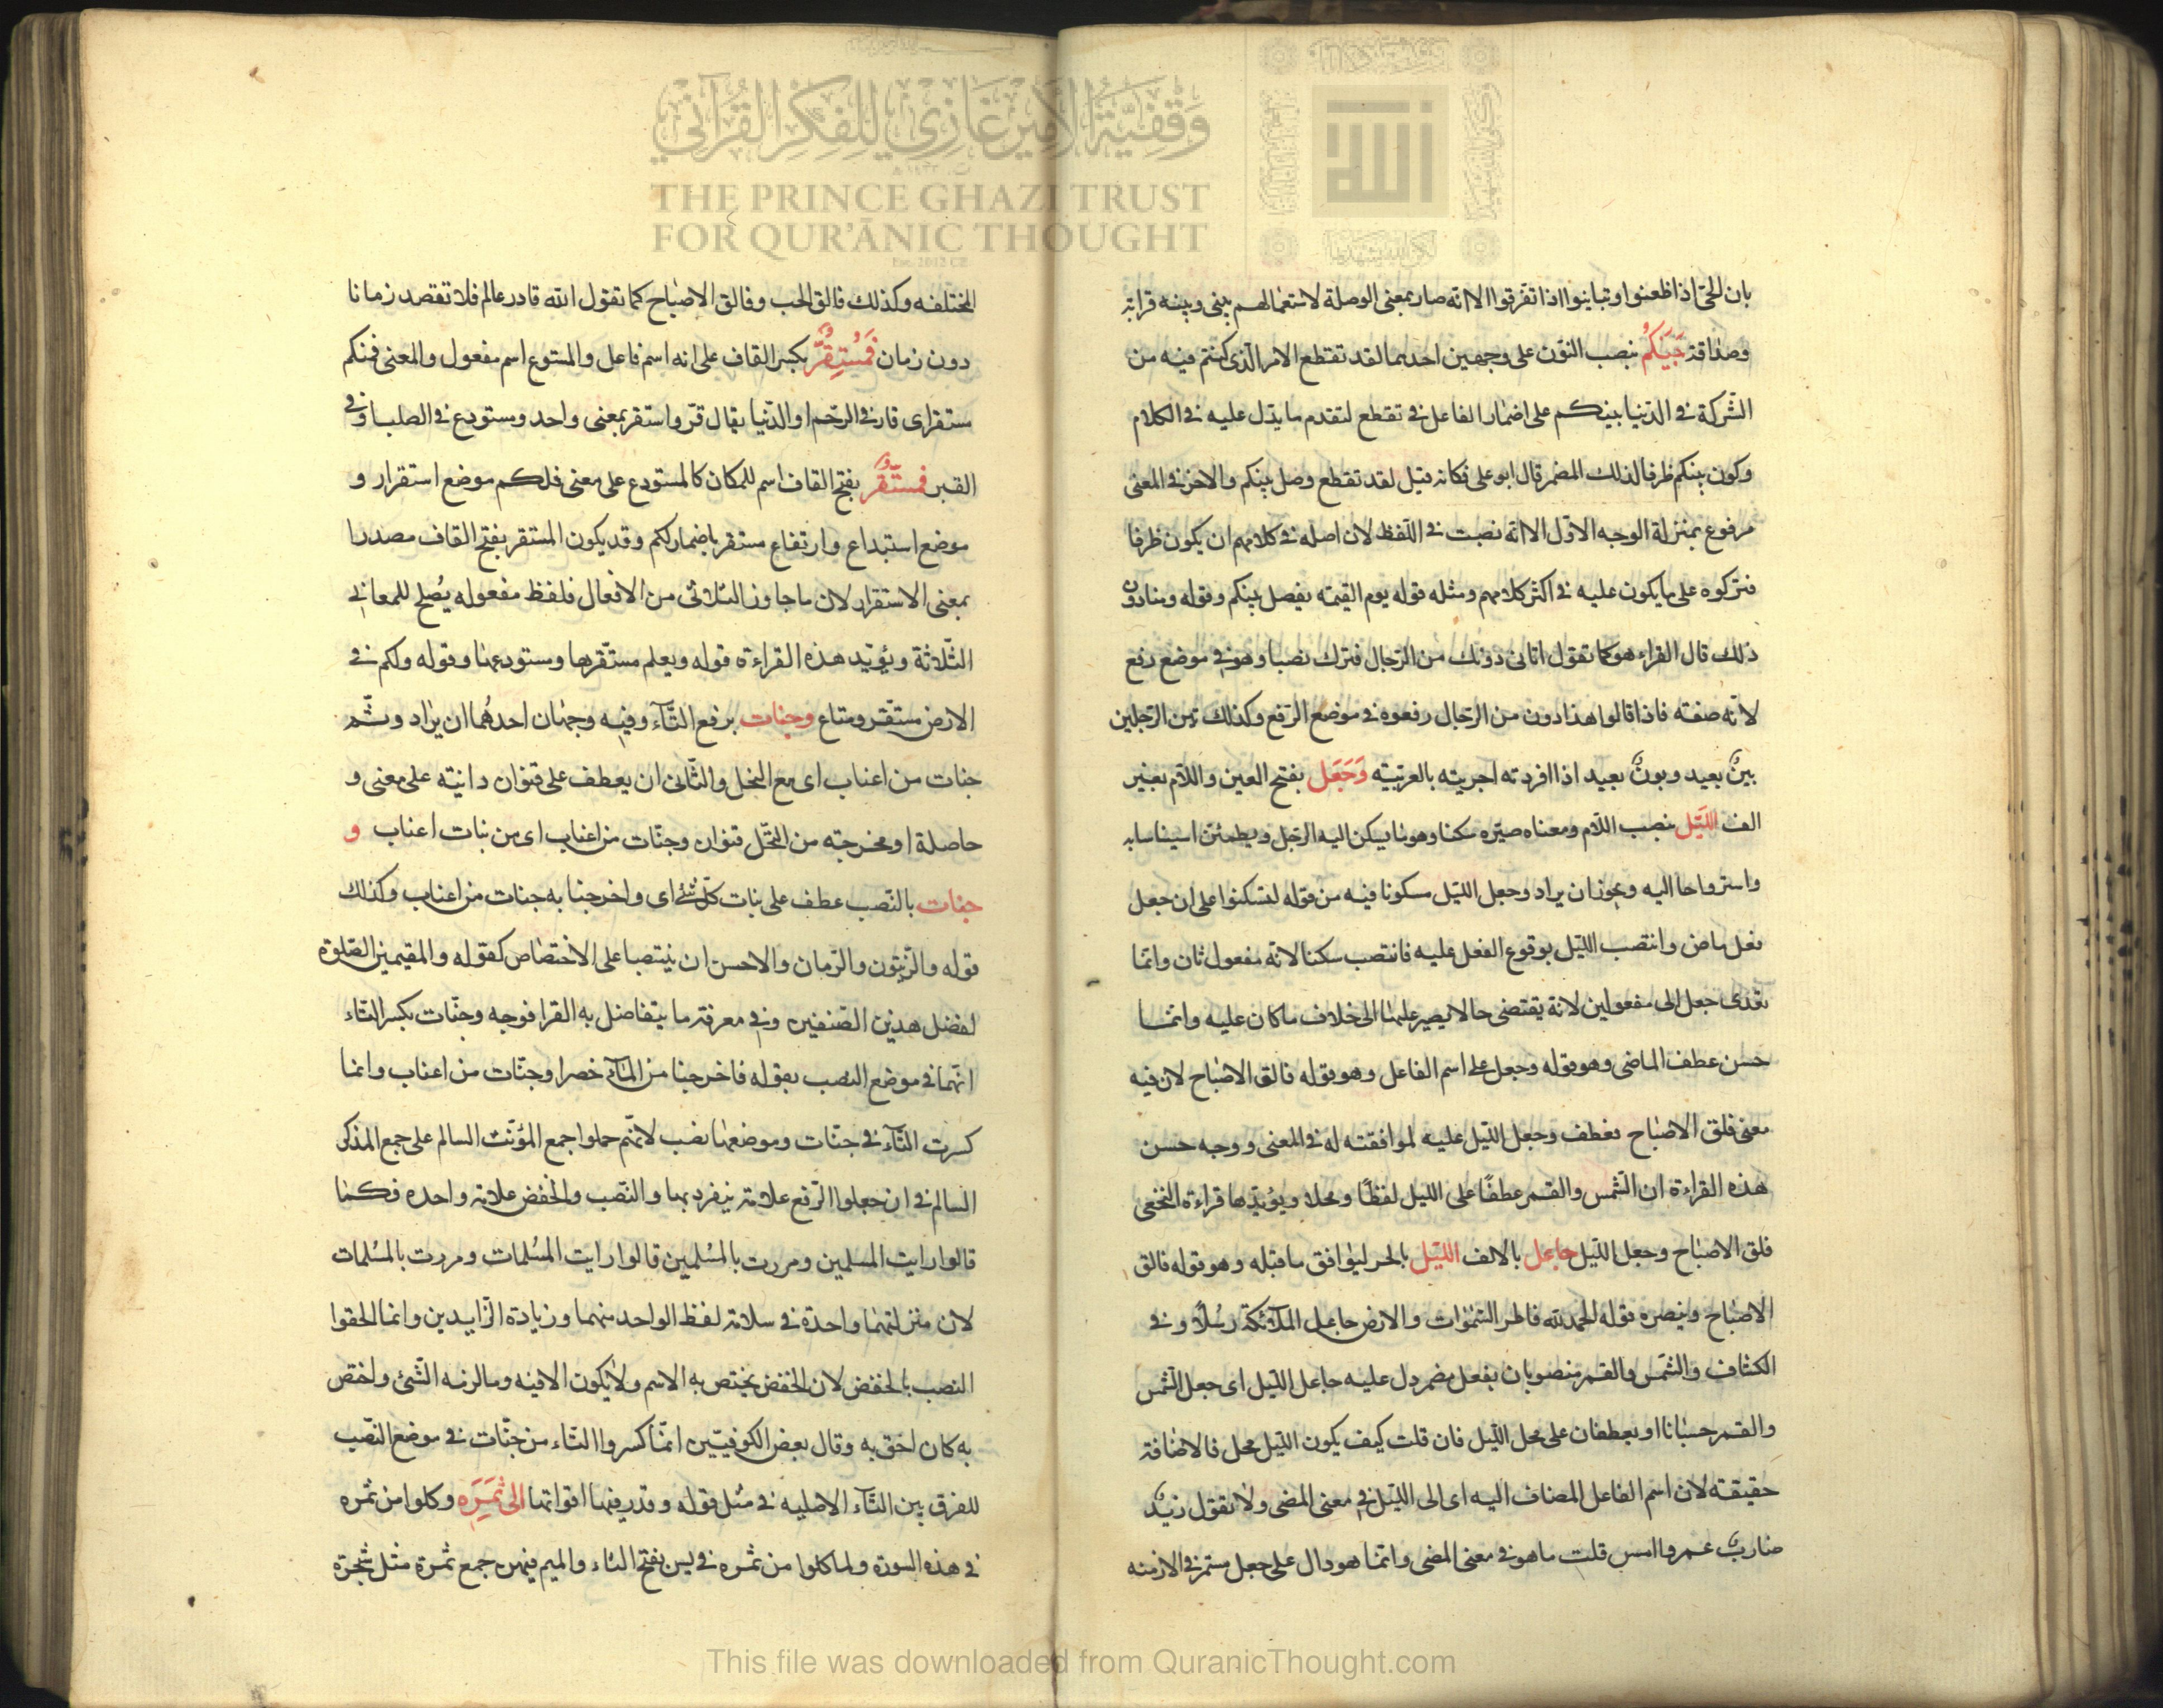 وَقْفِيَّةُ الأَمِيْرِ غَازِي لِلْفِكْرِ القُرْآنِي
THE PRINCE GHAZI TRUST
FOR QUR'ĀNIC THOUGHT
بان الحىّ اذا ظعنوا وتباينوا اذا تفرقوا الا انه صار بمعنى الوصلة لاستعمالهم بينى وبينه قرابة
وصداقة بَيْنَكُم بنصب النون على وجهين احدهما لقد تقطع الامر الذى كنتم فيه من
الشركة فى الدنيا بينكم على اضمار الفاعل فى تقطع لتقدم ما يدل عليه فى الكلام
وكون بينكم ظرفا لذلك المضمر قال ابو على فكانه قيل لقد تقطع وصل بينكم والاخر فى المعنى
مرفوع بمنزلة الوجه الاول الا انه نصبت فى اللفظ لان اصله فى كلامهم ان يكون ظرفا
فتركوه على ما يكون عليه فى اكثر كلامهم ومثله قوله يوم القيمة يفصل بينكم وقوله ومنا دون
ذلك قال الفراء هو كما تقول اتانى دونك من الرجال فترك نصبا وهو فى موضع رفع
لانه صفته فاذا قالوا هذا دون من الرجال رفعوه فى موضع الرفع وكذلك بين الرجلين
بينٌ بعيد وبونٌ بعيد اذا افردته اجريته بالعربية وَجَعَل بفتح العين واللام بغير
الف اللَّيل بنصب اللام ومعناه صيّره سكنا وهو ما يسكن اليه الرجل ويطمئن استيناسا به
واسترواحا اليه ويجوز ان يراد وجعل الليل سكونا فيه من قوله لتسكنوا على ان جعل
فعل ماض وانتصب الليل بوقوع الفعل عليه فانتصب سكنا لانه مفعول ثان وانما
تعدى جعل الى مفعولين لانه يقتضى حالا يصير عليها الى خلاف ما كان عليه وانما
حسن عطف الماضى وهو قوله وجعل على اسم الفاعل وهو قوله فالق الاصباح لان فيه
معنى فلق الاصباح فعطف وجعل الليل عليه لموافقته له فى المعنى ووجه حسن
هذه القراءة ان الشمس والقمر عطفًا على الليل لفظًا ومحلا ويؤيدها قراءة النخعى
فلق الاصباح وجعل الليل جاعل بالالف الليل بالجر ليوافق ما قبله وهو قوله فالق
الاصباح وينصره قوله الحمد لله فاطر السموات والارض جاعل الملائكة رسُلاً وفى
الكشاف والشمس والقمر منصوبان بفعل مضمر دل عليه جاعل الليل اى جعل الشمس
والقمر حسبانا او يعطفان على محل الليل فان قلت كيف يكون الليل محل فالاضافة
حقيقة لان اسم الفاعل المضاف اليه اى الى الليل فى معنى المضى ولا تقول زيدٌ
ضاربٌ عمرا امس قلت ما هو فى معنى المضى وانما هو دال على جعل مستمر فى الازمنه
المختلفه وكذلك فالق الحب وفالق الاصباح كما تقول الله قادر عالم فلا تقصد زمانا
دون زمان فَمُسْتَقِرٌّ بكسر القاف على انه اسم فاعل والمستودع اسم مفعول والمعنى فمنكم
مستقر اى قار فى الرحم او الدنيا يقال قرّ واستقر بمعنى واحد ومستودع فى الصلب او فى
القبر فمستقَرٌّ بفتح القاف اسم للمكان كالمستودع على معنى فلكم موضع استقرار و
موضع استيداع وارتفاع مستقر باضمار لكم وقد يكون المستقر بفتح القاف مصدرا
بمعنى الاستقرار لان ما جاوز الثلاثى من الافعال فلفظ مفعوله يصلح للمعانى
الثلاثة ويؤيد هذه القراءة قوله ويعلم مستقرها ومستودعها وقوله ولكم فى
الارض مستقر ومتاع وجنات برفع التاء وفيه وجهان احدهما ان يراد وثم
جنات من اعناب اى مع النخل والثانى ان يعطف على قنوان دانية على معنى و
حاصلة او مخرجة من النخل قنوان وجنات من اعناب اى من نبات اعناب و
جنات بالنصب عطف على نبات كل شئ اى واخرجنا به جنات من اعناب وكذلك
قوله والزيتون والرمان والاحسن ان ينتصبا على الاختصاص كقوله والمقيمين الصلوة
لفضل هذين الصنفين وفى معرفة ما يتفاضل به القرا فوجه وجنات بكسر التاء
انهما فى موضع النصب بقوله فاخرجنا من الماء خضرا وجنات من اعناب وانما
كسرت التاء فى جنات وموضعها نصب لانهم حملوا جمع المؤنث السالم على جمع المذكر
السالم فى ان جعلوا الرفع علامة ينفرد بها والنصب والخفض علامة واحده فكما
قالوا رايت المسلمين ومررت بالمسلمين قالوا رايت المسلمات ومررت بالمسلمات
لان منزلتهما واحدة فى سلامة لفظ الواحد منهما وزيادة الزايدين وانما الحقوا
النصب بالخفض لان الخفض يختص به الاسم ولا يكون الا فيه وما لزمه الشئ واختص
به كان احق به وقال بعض الكوفيين انما كسروا التاء من جنات فى موضع النصب
للفرق بين التاء الاصليه فى مثل قوله وقدر فيها اقواتها الى ثَمَرِه وكلوا من ثمره
فى هذه السورة وليأكلوا من ثمره فى يس بفتح الثاء والميم فيهن جمع ثمرة مثل شجرة
This file was downloaded from QuranicThought.com